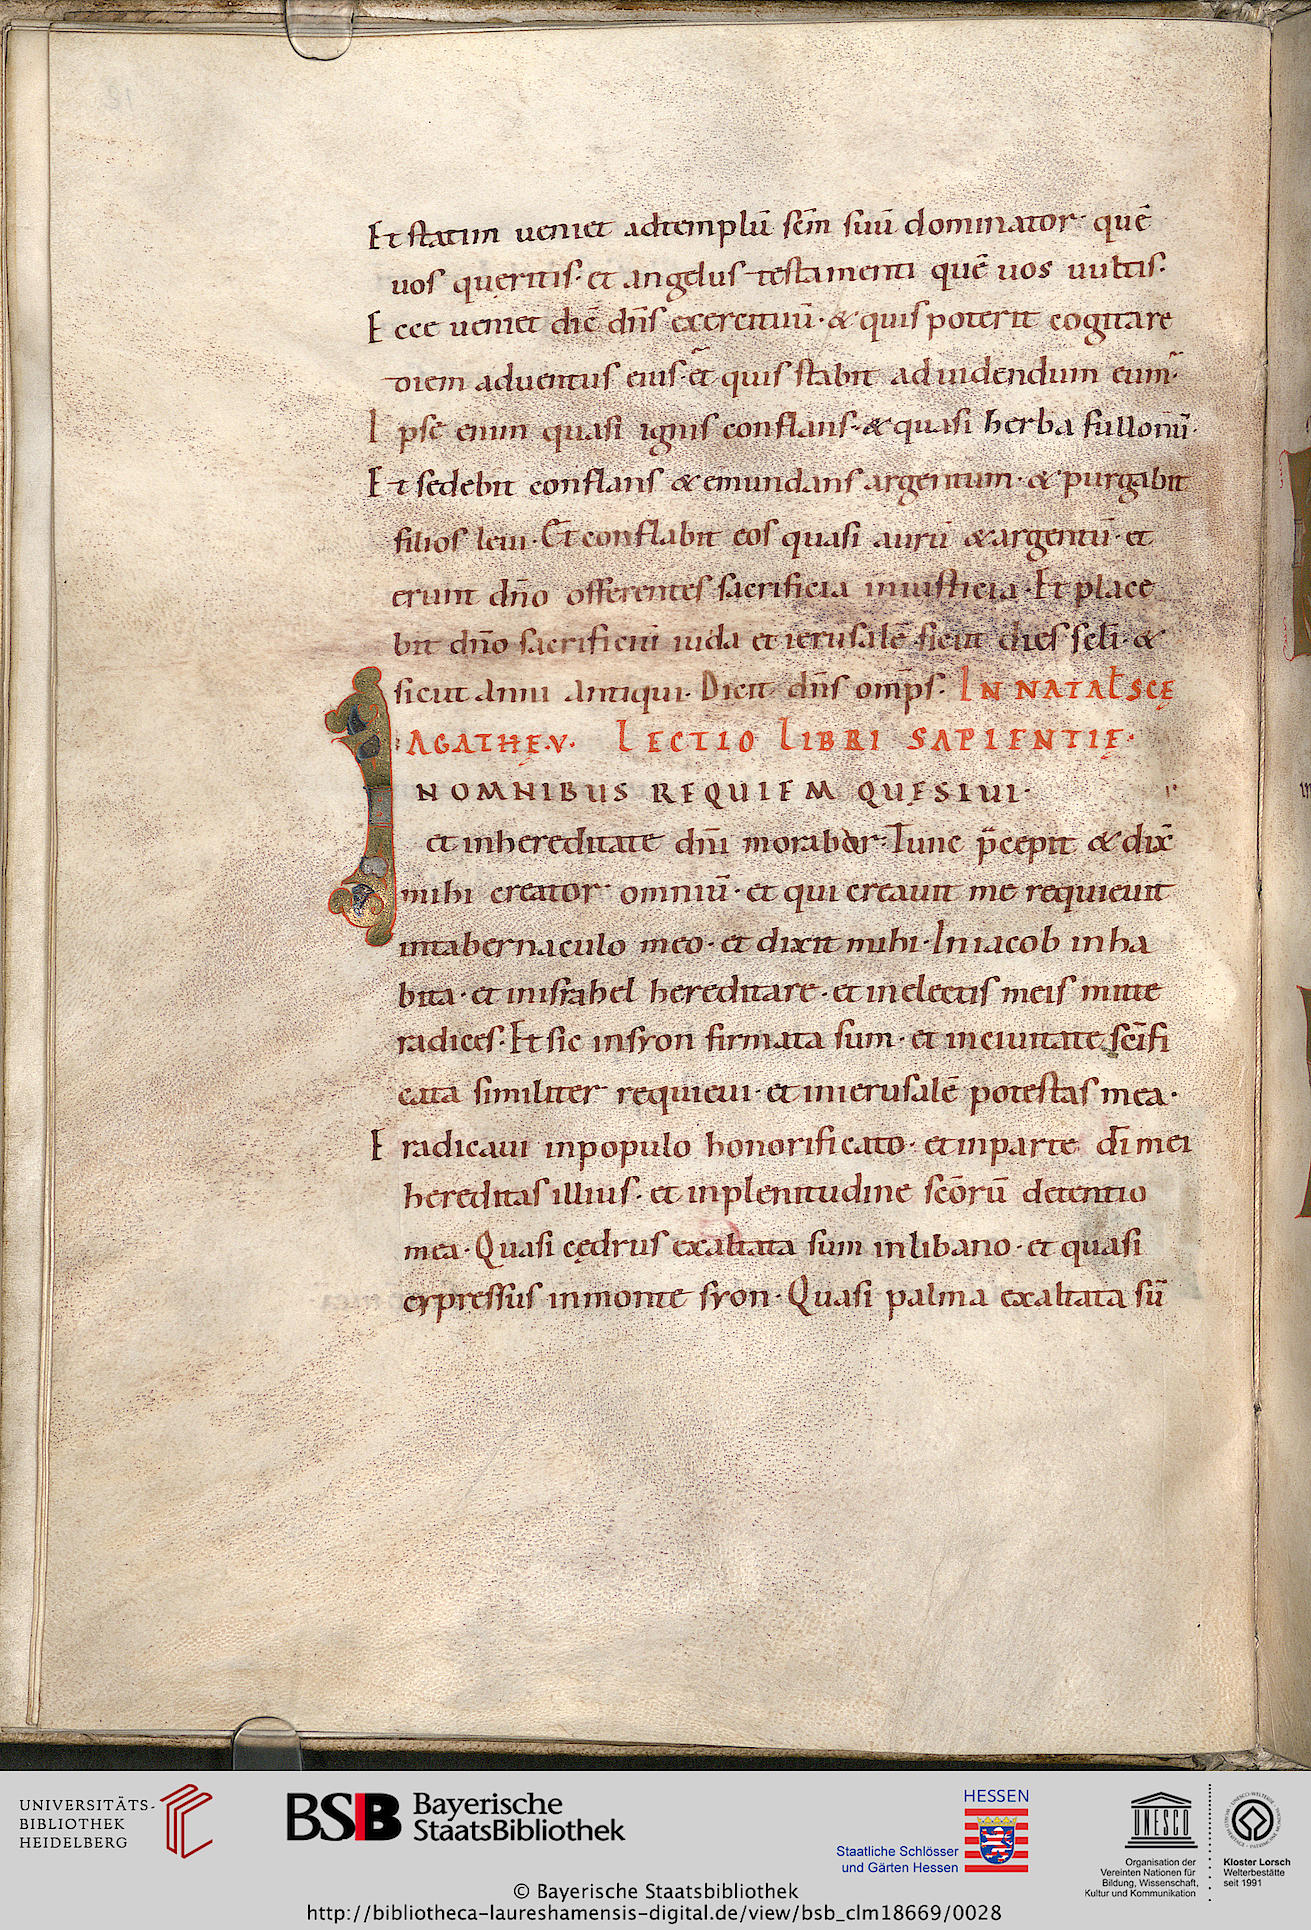 Et statim ueniet adtemplū sc̄m suū dominator· quē
uos queritis· et angelus testamenti quē uos uultis·
Ecce ueniet dic̄ dn̄s exercituū· & quis poterit cogitare
diem aduentus eius· et quis stabit aduidendum eum·
Ipse enim quasi ignis conflans· & quasi herba fullonū·
Et sedebit conflans & emundans argentum· & purgabit
filios leui· Et conflabit eos quasi aurū & argentū· et
erunt dn̄o offerentes sacrificia iniusticia· Et place
bit dn̄o sacrificiū iuda et ierusalē sicut dies sc̄li· &
sicut anni antiqui· Dicit dn̄s om̄ps· IN NATAƚ SCĘ
AGATHĘ·V· LECTIO LIBRI SAPIENTIĘ·
IN OMNIBUS REQUIEM QUESIUI·
et inhereditate dn̄i morabor· Tunc p̄cepit & dix̄
mihi creator omniū· et qui creauit me requieuit
intabernaculo meo· et dixit mihi· Iniacob inha
bita· et inisrahel hereditare· et inelectis meis mitte
radices· Et sic insyon firmata sum· et inciuitate sc̄ifi
cata similiter requieui· et inierusalē potestas mea·
Eradicaui inpopulo honorificato· et inparte dī mei
hereditas illius· et inplenitudine sc̄orū detentio
mea· Quasi cędrus exaltata sum inlibano· et quasi
cypressus inmonte syon· Quasi palma exaltata sū
UNIVERSITÄTS-
BIBLIOTHEK
HEIDELBERG
BSB Bayerische
StaatsBibliothek
HESSEN
Staatliche Schlösser
und Gärten Hessen
UNESCO
Organisation der
Vereinten Nationen für
Bildung, Wissenschaft,
Kultur und Kommunikation
Kloster Lorsch
Welterbestätte
seit 1991
© Bayerische Staatsbibliothek
http://bibliotheca-laureshamensis-digital.de/view/bsb_clm18669/0028